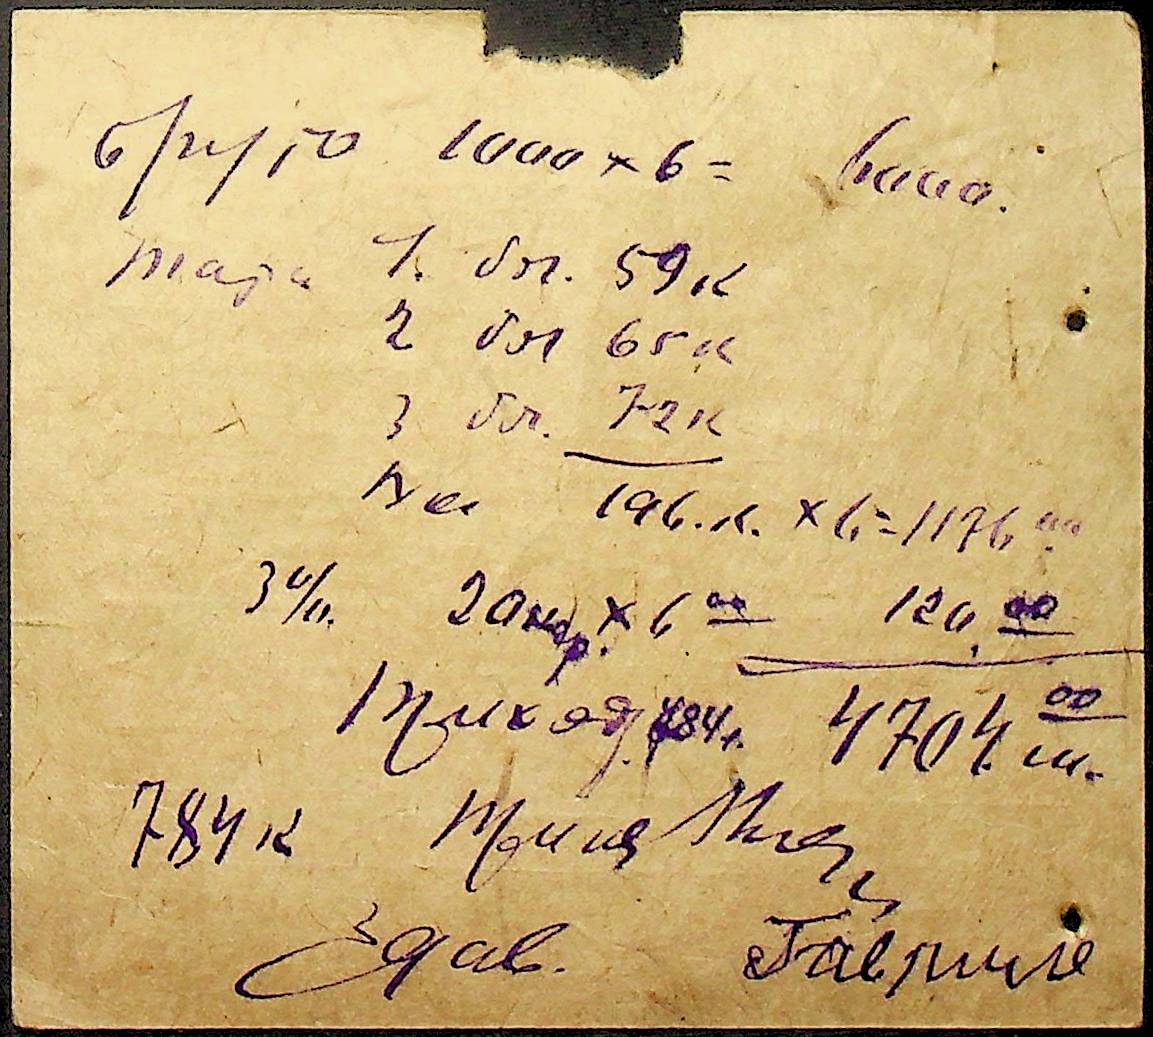 брутто 1000 × 6 = 6000.
тара 1. бл. 59 к
2 бл 65 к
3 бл. 72 к
196. к. × 6 = 1176 00
3 20 кор. × 6 00 120. 00
Приход. 784 к. 4704. 00
784 к Прин
Здав. Гавриле